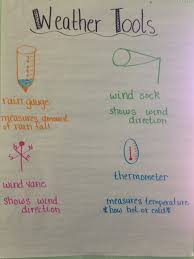 Weather Tools
rain gauge
measures amount
of rain fall
wind sock
shows wind
direction
wind vane
shows wind
direction
thermometer
measures temperature
*how hot or cold*